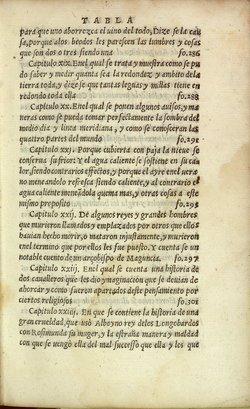 TABLA
para que uno aborrezca el uino del todo, Dize se la cau
sa, porque alos beodos les parescen las lumbres y cosas
que son dos o tres siendo una fo.286
Capitulo xix. En el qual se trata y muestra como se pu
do saber y medir quanta sea la redondez y ambito dela
tierra toda, y dize se que tantas leguas y millas tiene en
redondo toda ella fo.288
Capitulo xx. En el qual se ponen algunos auisos, y ma
neras como se pueda tomar perfectamente la sombra del
medio dia y linea meridiana, y como se conosceran las
quatro partes del mundo fo.291
Capitulo xxj. Porque cubierta con paja la nieue se
conserua su frior: y el agua caliente se sostiene en su ca
lor, siendo contrarios effectos, y porque el ayre en el uera
no meneandolo refresca siendo caliente, y al contrario el
agua caliente meneandola quema mas, y otras cosas al mis
mo proposito
Capitulo xxij. De algunos reyes y grandes hombres
que murieron llamados y emplazados por otros que ellos
hauian hecho morir, y mataron injustamente, y murieron
en el termino que por ellos les fue puesto. Y cuenta se un
notable cuento de un arçobispo de Maguncia. fo.297
Capitulo xxiij. En el qual se cuenta una historia de
dos caualleros que les dio ymaginacion que se deuian de
ahorcar y como fueron apartados deste pensamiento por
ciertos religiosos fo.301
Capitulo xxiiij. En que se contiene la historia de una
gran crueldad, que usó Alboyno rey delos Longobardos
con Rosimunda su muger, y la estraña manera y maldad
con que se uengó ella del mal successo que ella y los que